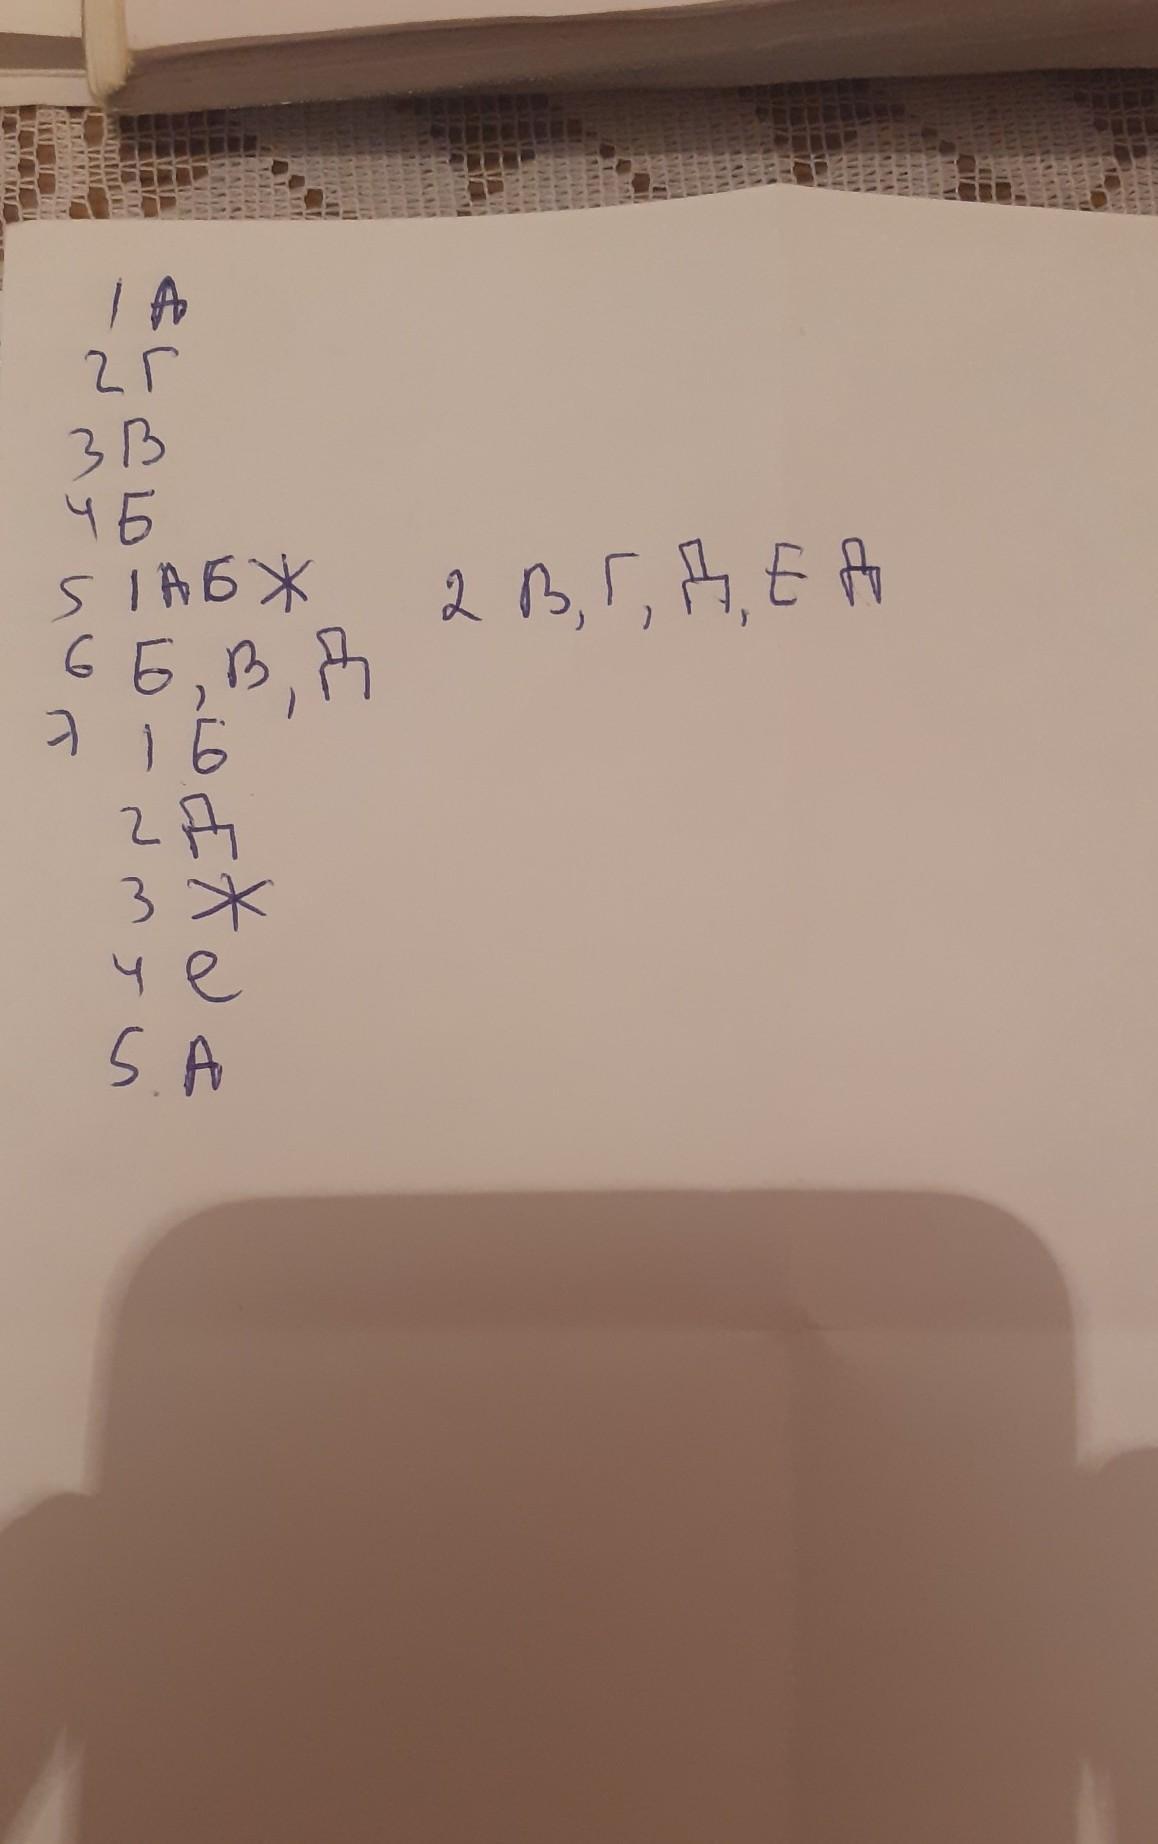 1 А
2 Г
3 В
4 Б
5 1 А Б Ж 2 В, Г, Д, Е Д
6 Б, В, Д
7 1 Б
2 Д
3 Ж
4 е
5. А